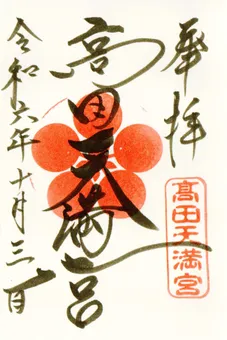 奉拝
高田天満宮
髙田天満宮
令和六年十月三一日